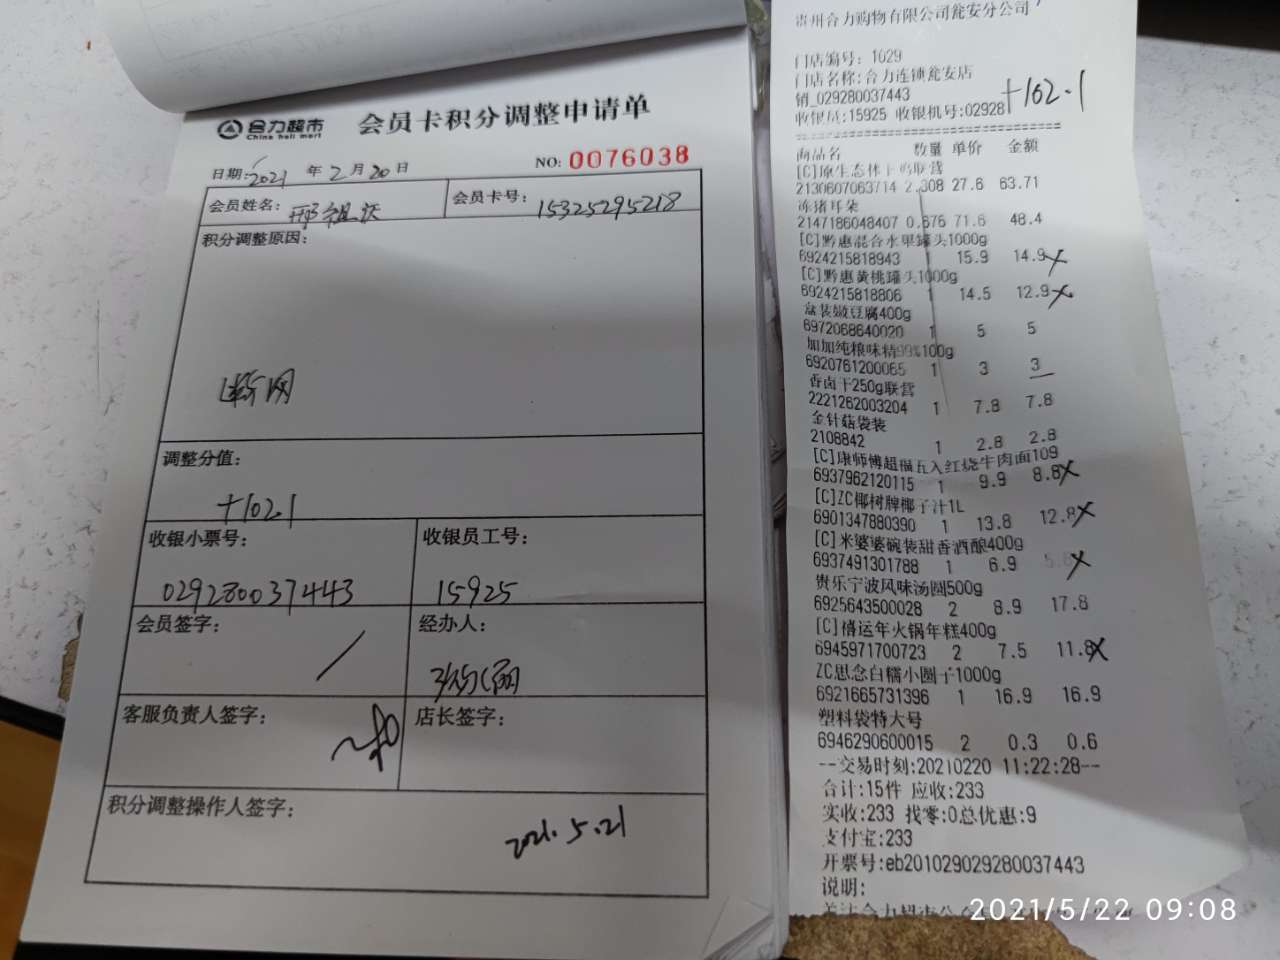 合力超市
China heli mart
会员卡积分调整申请单
日期: 2021 年 2 月 20 日
NO: 0076038
会员姓名: 邢祖跃
会员卡号: 15325295218
积分调整原因:
断网
调整分值:
+102.1
收银小票号:
029280037443
收银员工号:
15925
会员签字:
/
经办人:
客服负责人签字:
店长签字:
积分调整操作人签字:
2021.5.21
贵州合力购物有限公司瓮安分公司
门店编号: 1029
门店名称:合力连锁瓮安店
销_029280037443
收银员:15925 收银机号:02928
+102.1
商品名 数量 单价 金额
[C]原生态林下鸡联营
2130607063714 2.308 27.6 63.71
冻猪耳朵
2147186048407 0.676 71.6 48.4
[C]黔惠混合水果罐头1000g
6924215818943 1 15.9 14.9 X
[C]黔惠黄桃罐头1000g
6924215818806 1 14.5 12.9 X
盒装嫩豆腐400g
6972068640020 1 5 5
加加纯粮味精99%100g
6920761200065 1 3 3
香卤干250g联营
2221262003204 1 7.8 7.8
金针菇袋装
2108842 1 2.8 2.8
[C]康师傅超福五入红烧牛肉面109
6937962120115 1 9.9 8.8 X
[C]ZC椰树牌椰子汁1L
6901347880390 1 13.8 12.8 X
[C]米婆婆碗装甜香酒酿400g
6937491301788 1 6.9 5.8 X
贵乐宁波风味汤圆500g
6925643500028 2 8.9 17.8
[C]禧运年火锅年糕400g
6945971700723 2 7.5 11.8 X
ZC思念白糯小圆子1000g
6921665731396 1 16.9 16.9
塑料袋特大号
6946290600015 2 0.3 0.6
--交易时刻:20210220 11:22:28--
合计:15件 应收:233
实收:233 找零:0总优惠:9
支付宝:233
开票号:eb201029029280037443
说明:
2021/5/22 09:08